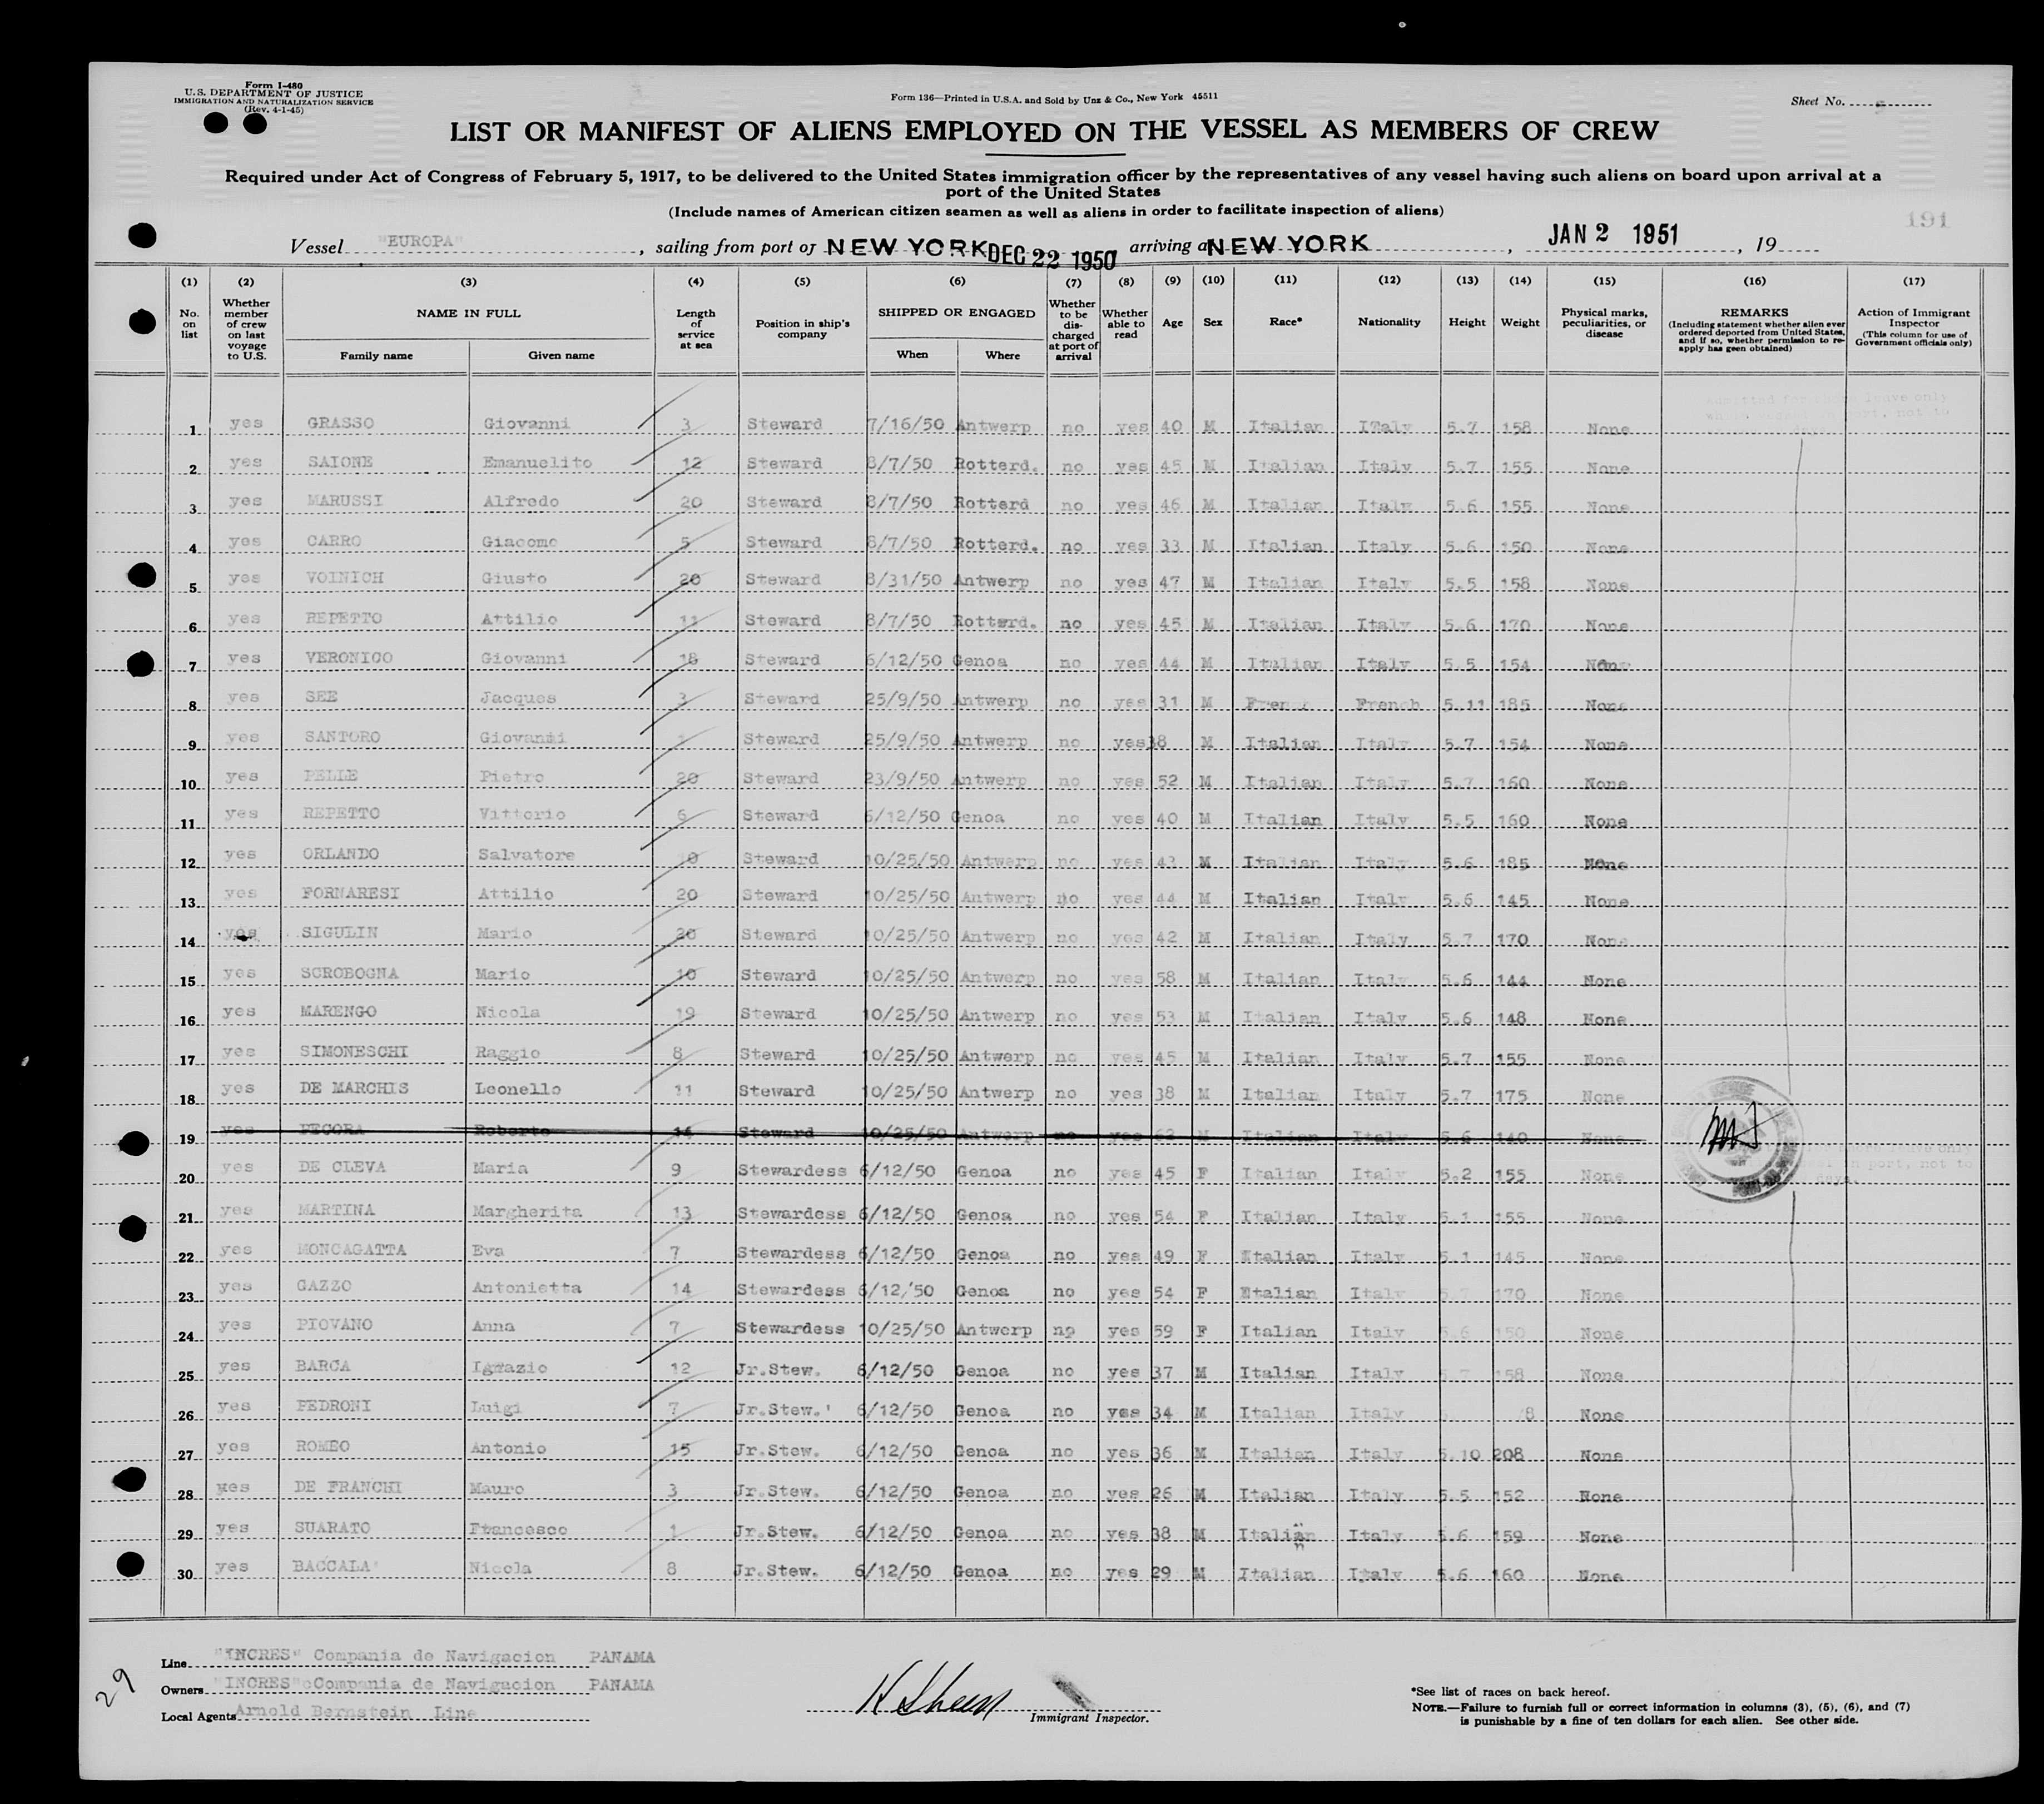 Form I-480
U.S. DEPARTMENT OF JUSTICE
IMMIGRATION AND NATURALIZATION SERVICE
(Rev. 4-1-45)
Form 136—Printed in U.S.A. and Sold by Unz & Co., New York 45511
Sheet No.
LIST OR MANIFEST OF ALIENS EMPLOYED ON THE VESSEL AS MEMBERS OF CREW
Required under Act of Congress of February 5, 1917, to be delivered to the United States immigration officer by the representatives of any vessel having such aliens on board upon arrival at a
port of the United States
(Include names of American citizen seamen as well as aliens in order to facilitate inspection of aliens)
191
Vessel "EUROPA", sailing from port of NEW YORK DEC 22 1950 arriving at NEW YORK, JAN 2 1951, 19
(1) (2) (3) (4) (5) (6) (7) (8) (9) (10) (11) (12) (13) (14) (15) (16) (17)
No. on list
Whether member of crew on last voyage to U.S.
NAME IN FULL
Family name Given name
Length of service at sea
Position in ship's company
SHIPPED OR ENGAGED
When Where
Whether to be discharged at port of arrival
Whether able to read
Age Sex Race* Nationality Height Weight
Physical marks, peculiarities, or disease
REMARKS
(Including statement whether alien ever ordered deported from United States, and if so, whether permission to re-apply has geen obtained)
Action of Immigrant Inspector
(This column for use of Government officials only)
1 yes GRASSO Giovanni 3 Steward 7/16/50 Antwerp no yes 40 M Italian ITaly 5.7 158 None
2 yes SAIONE Emanuelito 12 Steward 8/7/50 Rotterd. no yes 45 M Italian Italy 5.7 155 None
3 yes MARUSSI Alfredo 20 Steward 8/7/50 Rotterd no yes 46 M Italian Italy 5.6 155 None
4 yes CARRO Giacomo 5 Steward 8/7/50 Rotterd. no yes 33 M Italian Italy 5.6 150 None
5 yes VOINICH Giusto 20 Steward 8/31/50 Antwerp no yes 47 M Italian Italy 5.5 158 None
6 yes REPETTO Attilio 11 Steward 8/7/50 Rotterd. no yes 45 M Italian Italy 5.6 170 None
7 yes VERONICO Giovanni 18 Steward 6/12/50 Genoa no yes 44 M Italian Italy 5.5 154 None
8 yes SEE Jacques 3 Steward 25/9/50 Antwerp no yes 31 M French French 5.11 185 None
9 yes SANTORO Giovanni Steward 25/9/50 Antwerp no yes 38 M Italian Italy 5.7 154 None
10 yes PELLE Pietro 20 Steward 23/9/50 Antwerp no yes 52 M Italian Italy 5.7 160 None
11 yes REPETTO Vittorio 6 Steward 6/12/50 Genoa no yes 40 M Italian Italy 5.5 160 None
12 yes ORLANDO Salvatore Steward 10/25/50 Antwerp no yes 43 M Italian Italy 5.6 185 None
13 yes FORNARESI Attilio 20 Steward 10/25/50 Antwerp no yes 44 M Italian Italy 5.6 145 None
14 yes SIGULIN Mario 20 Steward 10/25/50 Antwerp no yes 42 M Italian Italy 5.7 170 None
15 yes SCROBOGNA Mario 10 Steward 10/25/50 Antwerp no yes 58 M Italian Italy 5.6 144 None
16 yes MARENGO Nicola 19 Steward 10/25/50 Antwerp no yes 53 M Italian Italy 5.6 148 None
17 yes SIMONESCHI Raggio 8 Steward 10/25/50 Antwerp no yes 45 M Italian Italy 5.7 155 None
18 yes DE MARCHIS Leonello 11 Steward 10/25/50 Antwerp no yes 38 M Italian Italy 5.7 175 None
19 yes PECORA Roberto Steward 10/25/50 Antwerp no yes M Italian Italy 5.6 140 None
20 yes DE CLEVA Maria 9 Stewardess 6/12/50 Genoa no yes 45 F Italian Italy 5.2 155 None
21 yes MARTINA Margherita 13 Stewardess 6/12/50 Genoa no yes 54 F Italian Italy 5.1 155 None
22 yes MONCAGATTA Eva 7 Stewardess 6/12/50 Genoa no yes 49 F Italian Italy 5.1 145 None
23 yes GAZZO Antonietta 14 Stewardess 6/12/50 Genoa no yes 54 F Italian Italy 5.7 170 None
24 yes PIOVANO Anna 7 Stewardess 10/25/50 Antwerp no yes 59 F Italian Italy 5.6 150 None
25 yes BARCA Ignazio 12 Jr.Stew. 6/12/50 Genoa no yes 37 M Italian Italy 5.7 158 None
26 yes PEDRONI Luigi 7 Jr.Stew. 6/12/50 Genoa no yes 34 M Italian Italy None
27 yes ROMEO Antonio 15 Jr.Stew. 6/12/50 Genoa no yes 36 M Italian Italy 5.10 208 None
28 yes DE FRANCHI Mauro 3 Jr.Stew. 6/12/50 Genoa no yes 26 M Italian Italy 5.5 152 None
29 yes SUARATO Francesco 1 Jr.Stew. 6/12/50 Genoa no yes 38 M Italian Italy 5.6 159 None
30 yes BACCALA' Nicola 8 Jr.Stew. 6/12/50 Genoa no yes 29 M Italian Italy 5.6 160 None
29
Line "INCRES" Compania de Navigacion PANAMA
Owners "INCRES" Compania de Navigacion PANAMA
Local Agents Arnold Bernstein Line
Immigrant Inspector.
*See list of races on back hereof.
NOTE.—Failure to furnish full or correct information in columns (3), (5), (6), and (7)
is punishable by a fine of ten dollars for each alien. See other side.